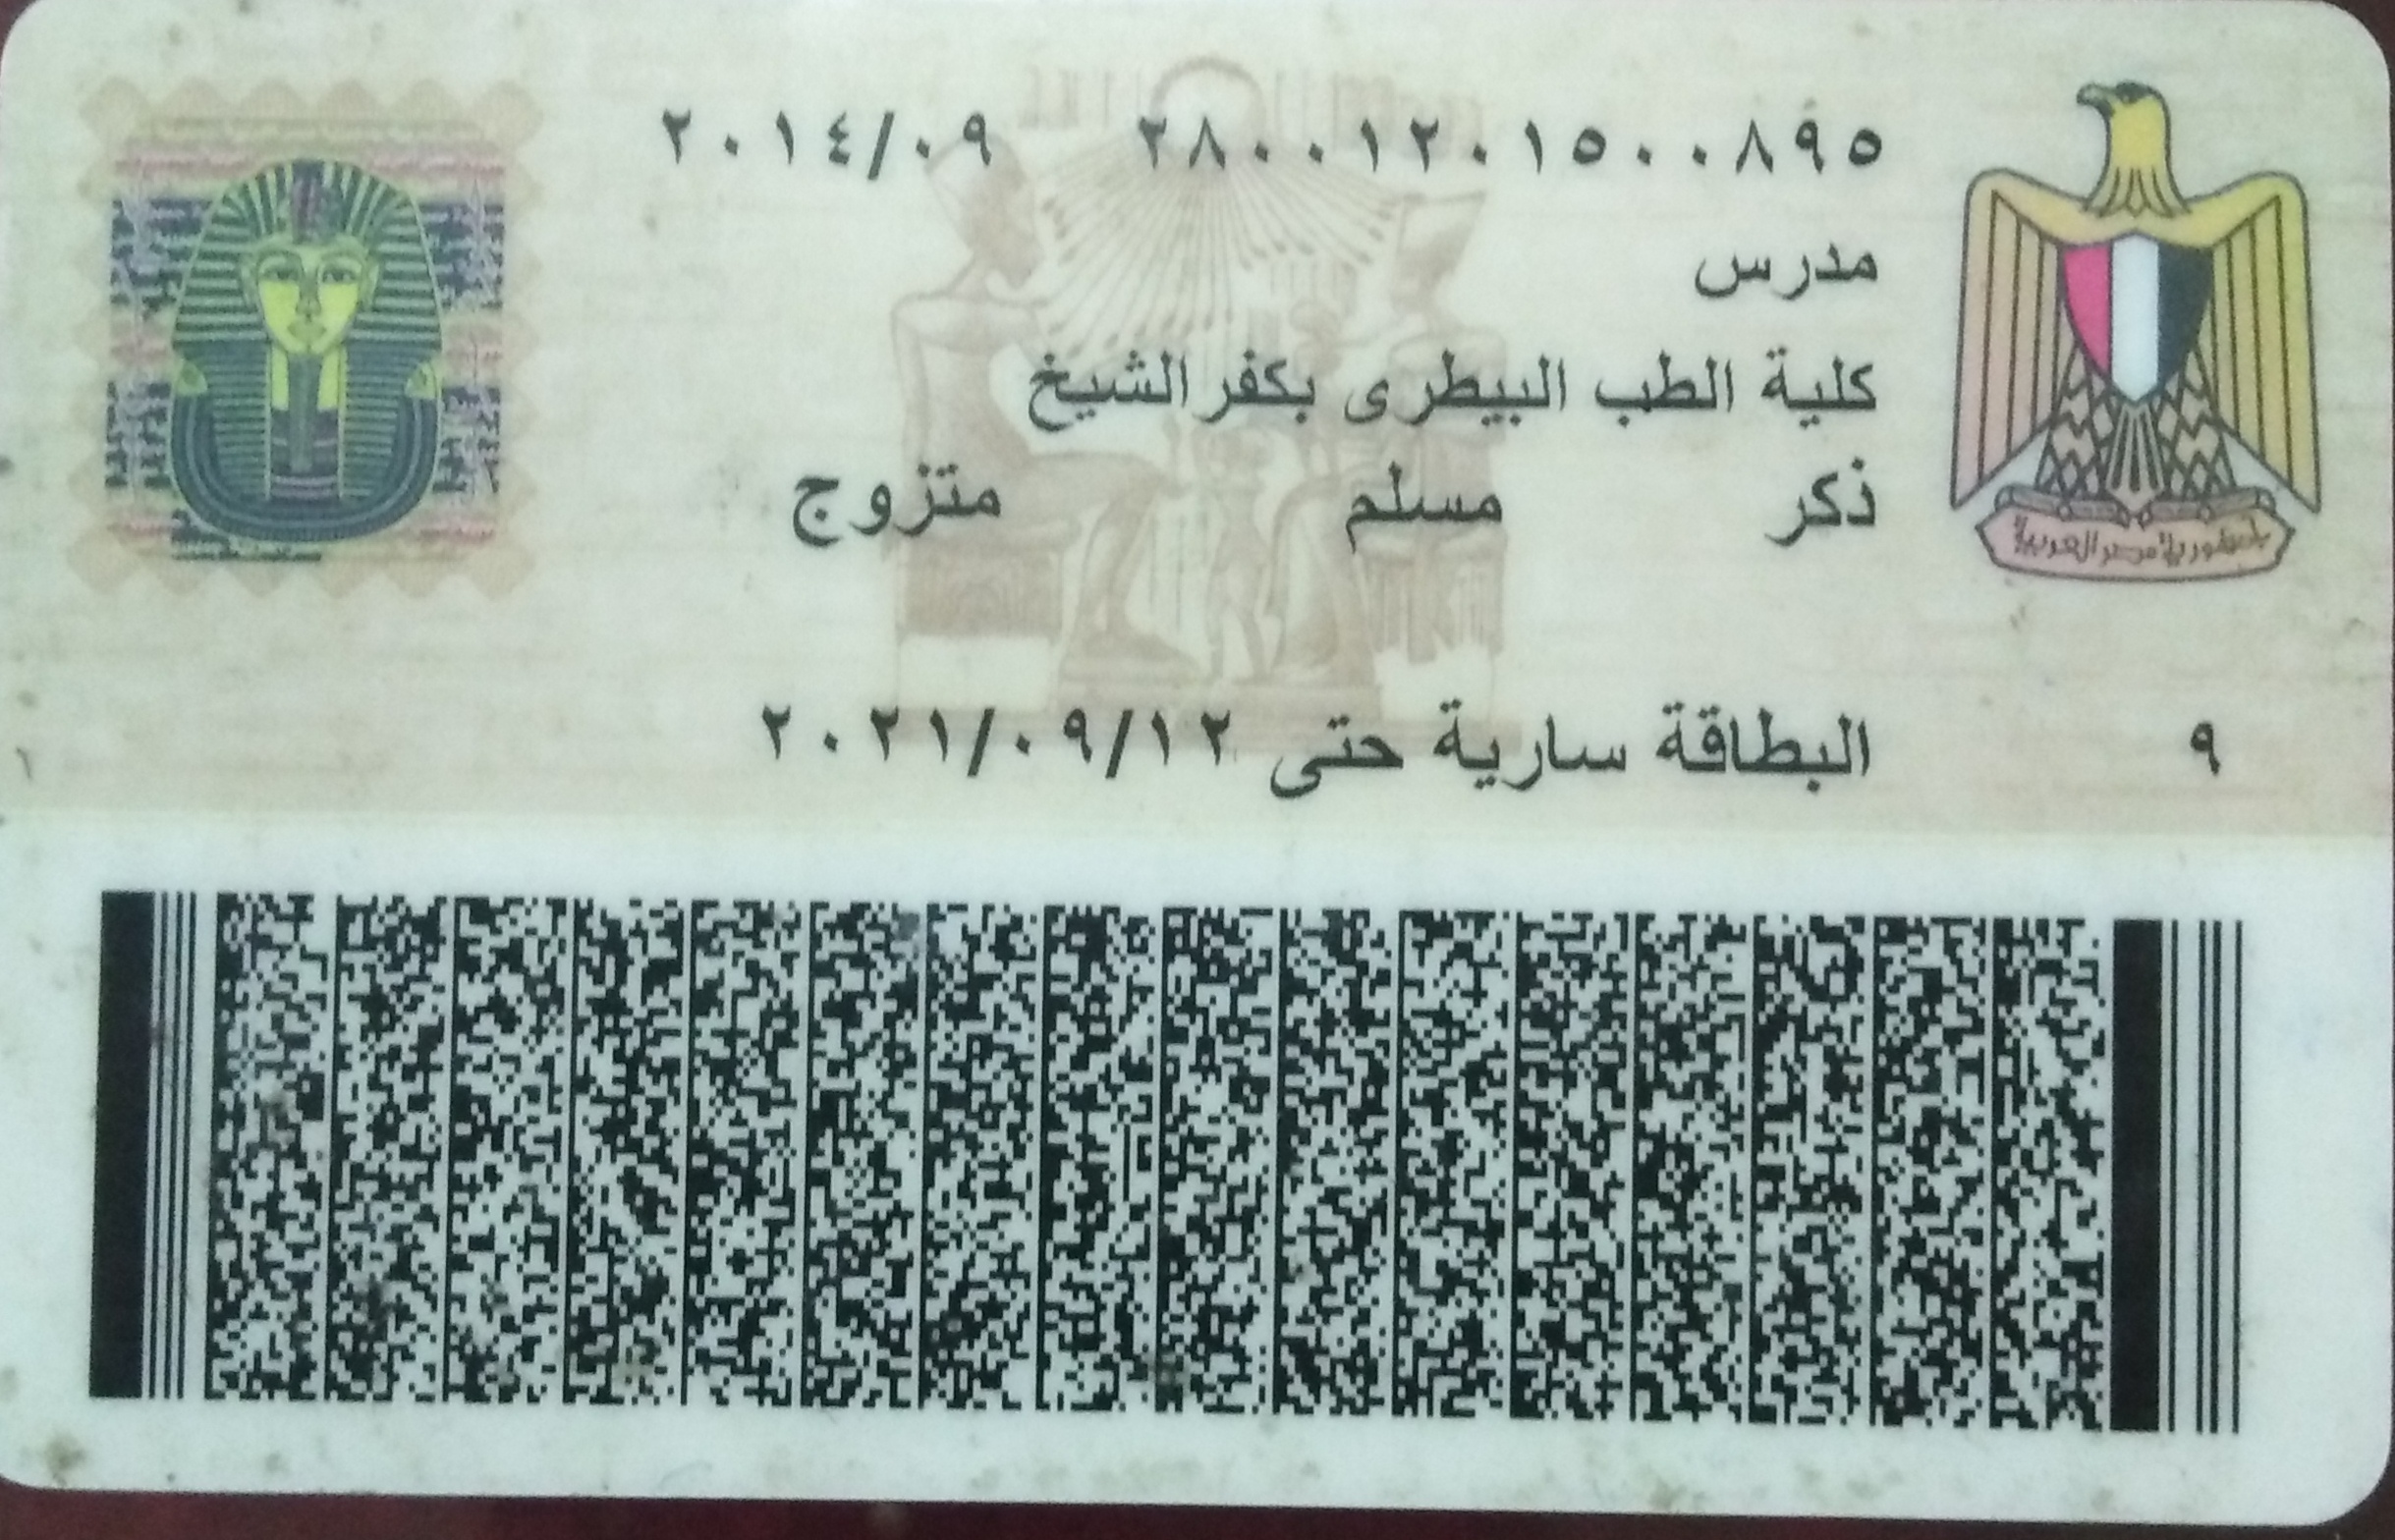 ٢٨٠٠١٢٠١٥٠٠٨٩٥ ٢٠١٤/٠٩
مدرس
كلية الطب البيطرى بكفر الشيخ
ذكر مسلم متزوج
جمهورية مصر العربية
٩ البطاقة سارية حتى ٢٠٢١/٠٩/١٢
١